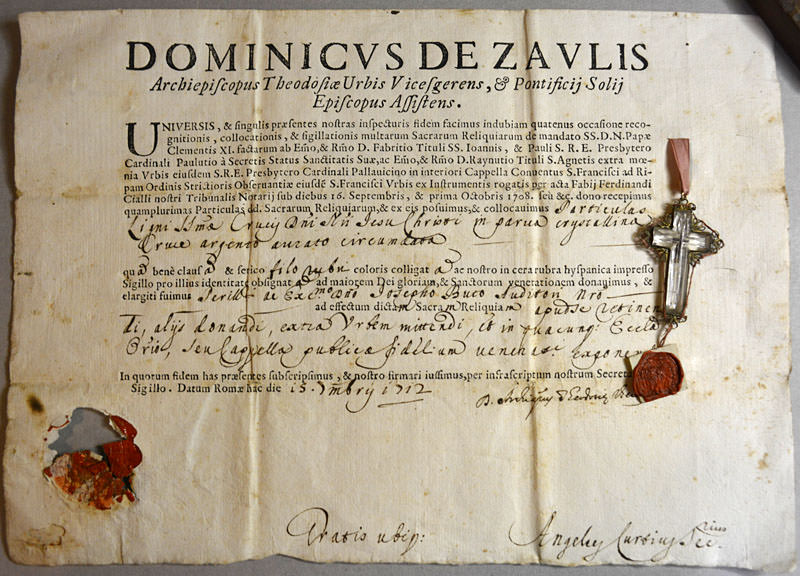 DOMINICVS DE ZAVLIS
Archiepiscopus Theodosiæ Urbis Vicesgerens, & Pontificij Solij
Episcopus Assistens.
UNIVERSIS, & singulis præsentes nostras inspecturis fidem facimus indubiam quatenus occasione reco-
gnitionis, collocationis, & sigillationis multarum Sacrarum Reliquiarum de mandato SS.D.N.Papæ
Clementis XI. factarum ab Emo, & Rmo D. Fabritio Tituli SS. Ioannis, & Pauli S. R. E. Presbytero
Cardinali Paulutio à Secretis Status Sanctitatis Suæ, ac Emo, & Rmo D. Raynutio Tituli S. Agnetis extra mœ-
nia Urbis eiusdem S.R.E. Presbytero Cardinali Pallauicino in interiori Cappella Conuentus S. Francisci ad Ri-
pam Ordinis Strictioris Obseruantiæ eiusdē S. Francisci Vrbis ex Instrumentis rogatis per acta Fabij Ferdinandi
Cialli nostri Tribunalis Notarij sub diebus 16. Septembris, & prima Octobris 1708. seù &c. dono recepimus
quamplurimas Particulas dd. Sacrarum Reliquiarum, & ex eis posuimus, & collocauimus Particulas
Ligni SSmæ Crucis Dni Nri Jesu Christi in parva crystallina
Cruce argento aurato circumdata
quæ benè clausa & serico filo rubri coloris colligata ac nostro in cera rubra hyspanica impresso
Sigillo pro illius identitate obsignata ad maiorem Dei gloriam, & Sanctorum venerationem donauimus, &
elargiti fuimus de Dno Josepho Buco Auditori Nro
ad effectum dictam Sacram Reliquiam apud se retinen
di, alijs donandi, extra Urbem mittendi, et in quacunq Eccla
Orio, seu Cappella publicæ fidelium venerat. exponen
In quorum fidem has præsentes subscripsimus, & nostro firmari iussimus, per infrascriptum nostrum Secret
Sigillo. Datum Romæ hac die 15. 1712
D. Archiepus
Gratis ubiq:
Angelus Curtius Sec.rius